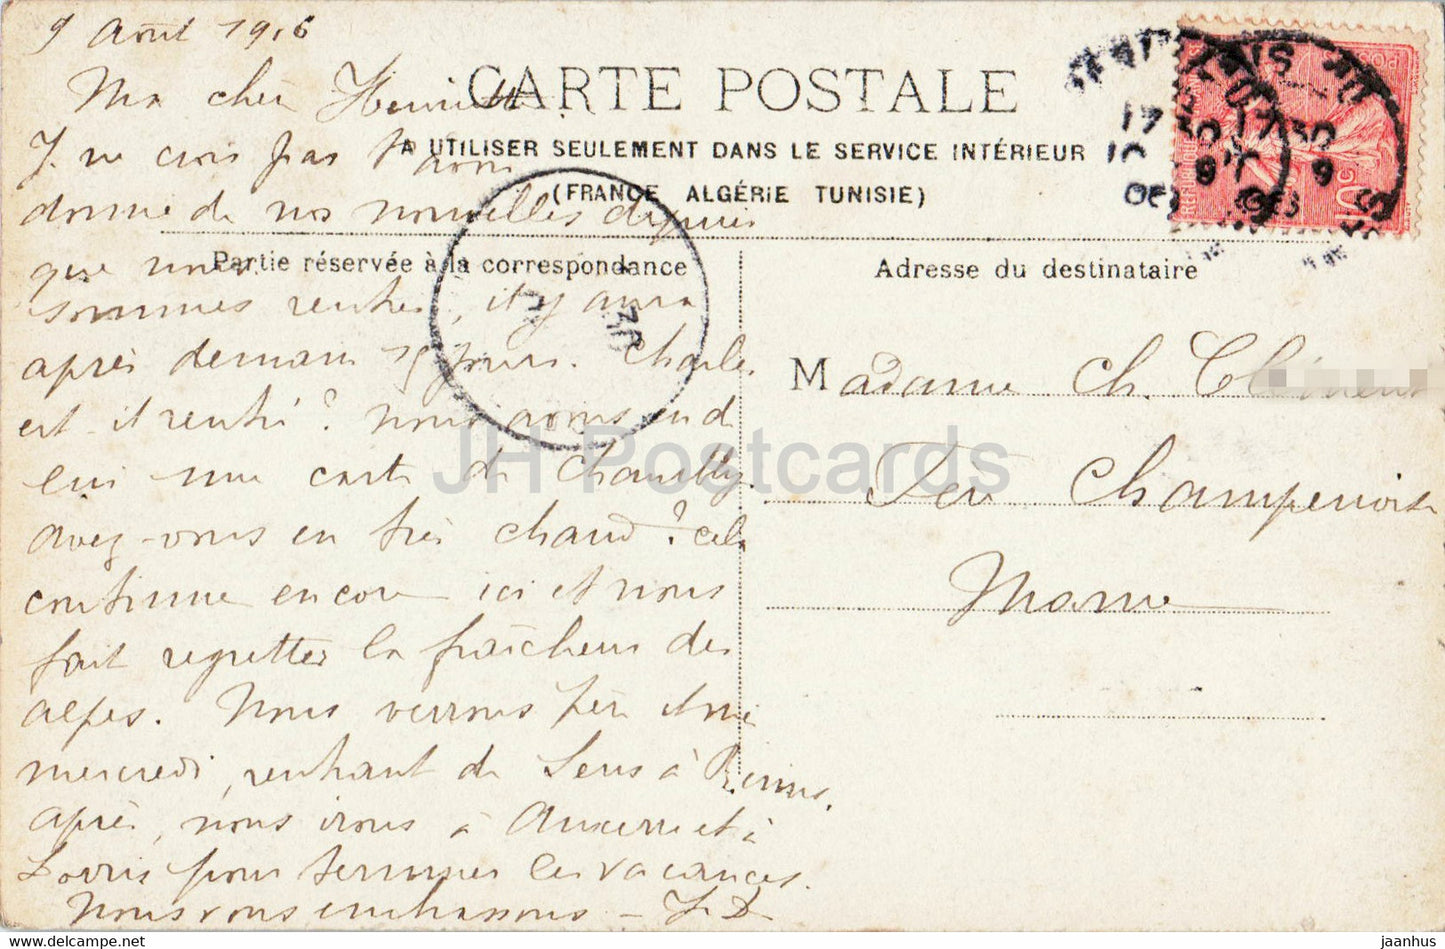 9 Août 1906
Ma chère Henriette
CARTE POSTALE
A UTILISER SEULEMENT DANS LE SERVICE INTÉRIEUR
(FRANCE ALGÉRIE TUNISIE)
Je ne crois pas t'avoir
donné de nos nouvelles depuis
que nous
sommes rentrés, il y aura
après demain 15 jours. Charles
est-il rentré? Nous avons eu de
lui une carte de Chantilly.
avez-vous eu très chaud? cela
continue encore ici et nous
fait regretter la fraîcheur des
alpes. Nous verrons
mercredi, rentrant de Sens à Reims.
après, nous irons à Auxerre et à
pour terminer les vacances.
Nous vous embrassons – J D
Partie réservée à la correspondance
Adresse du destinataire
Madame Ch.
Fère Champenoise
Marne
JH Postcards
jaanhus — www.jaanhus.com